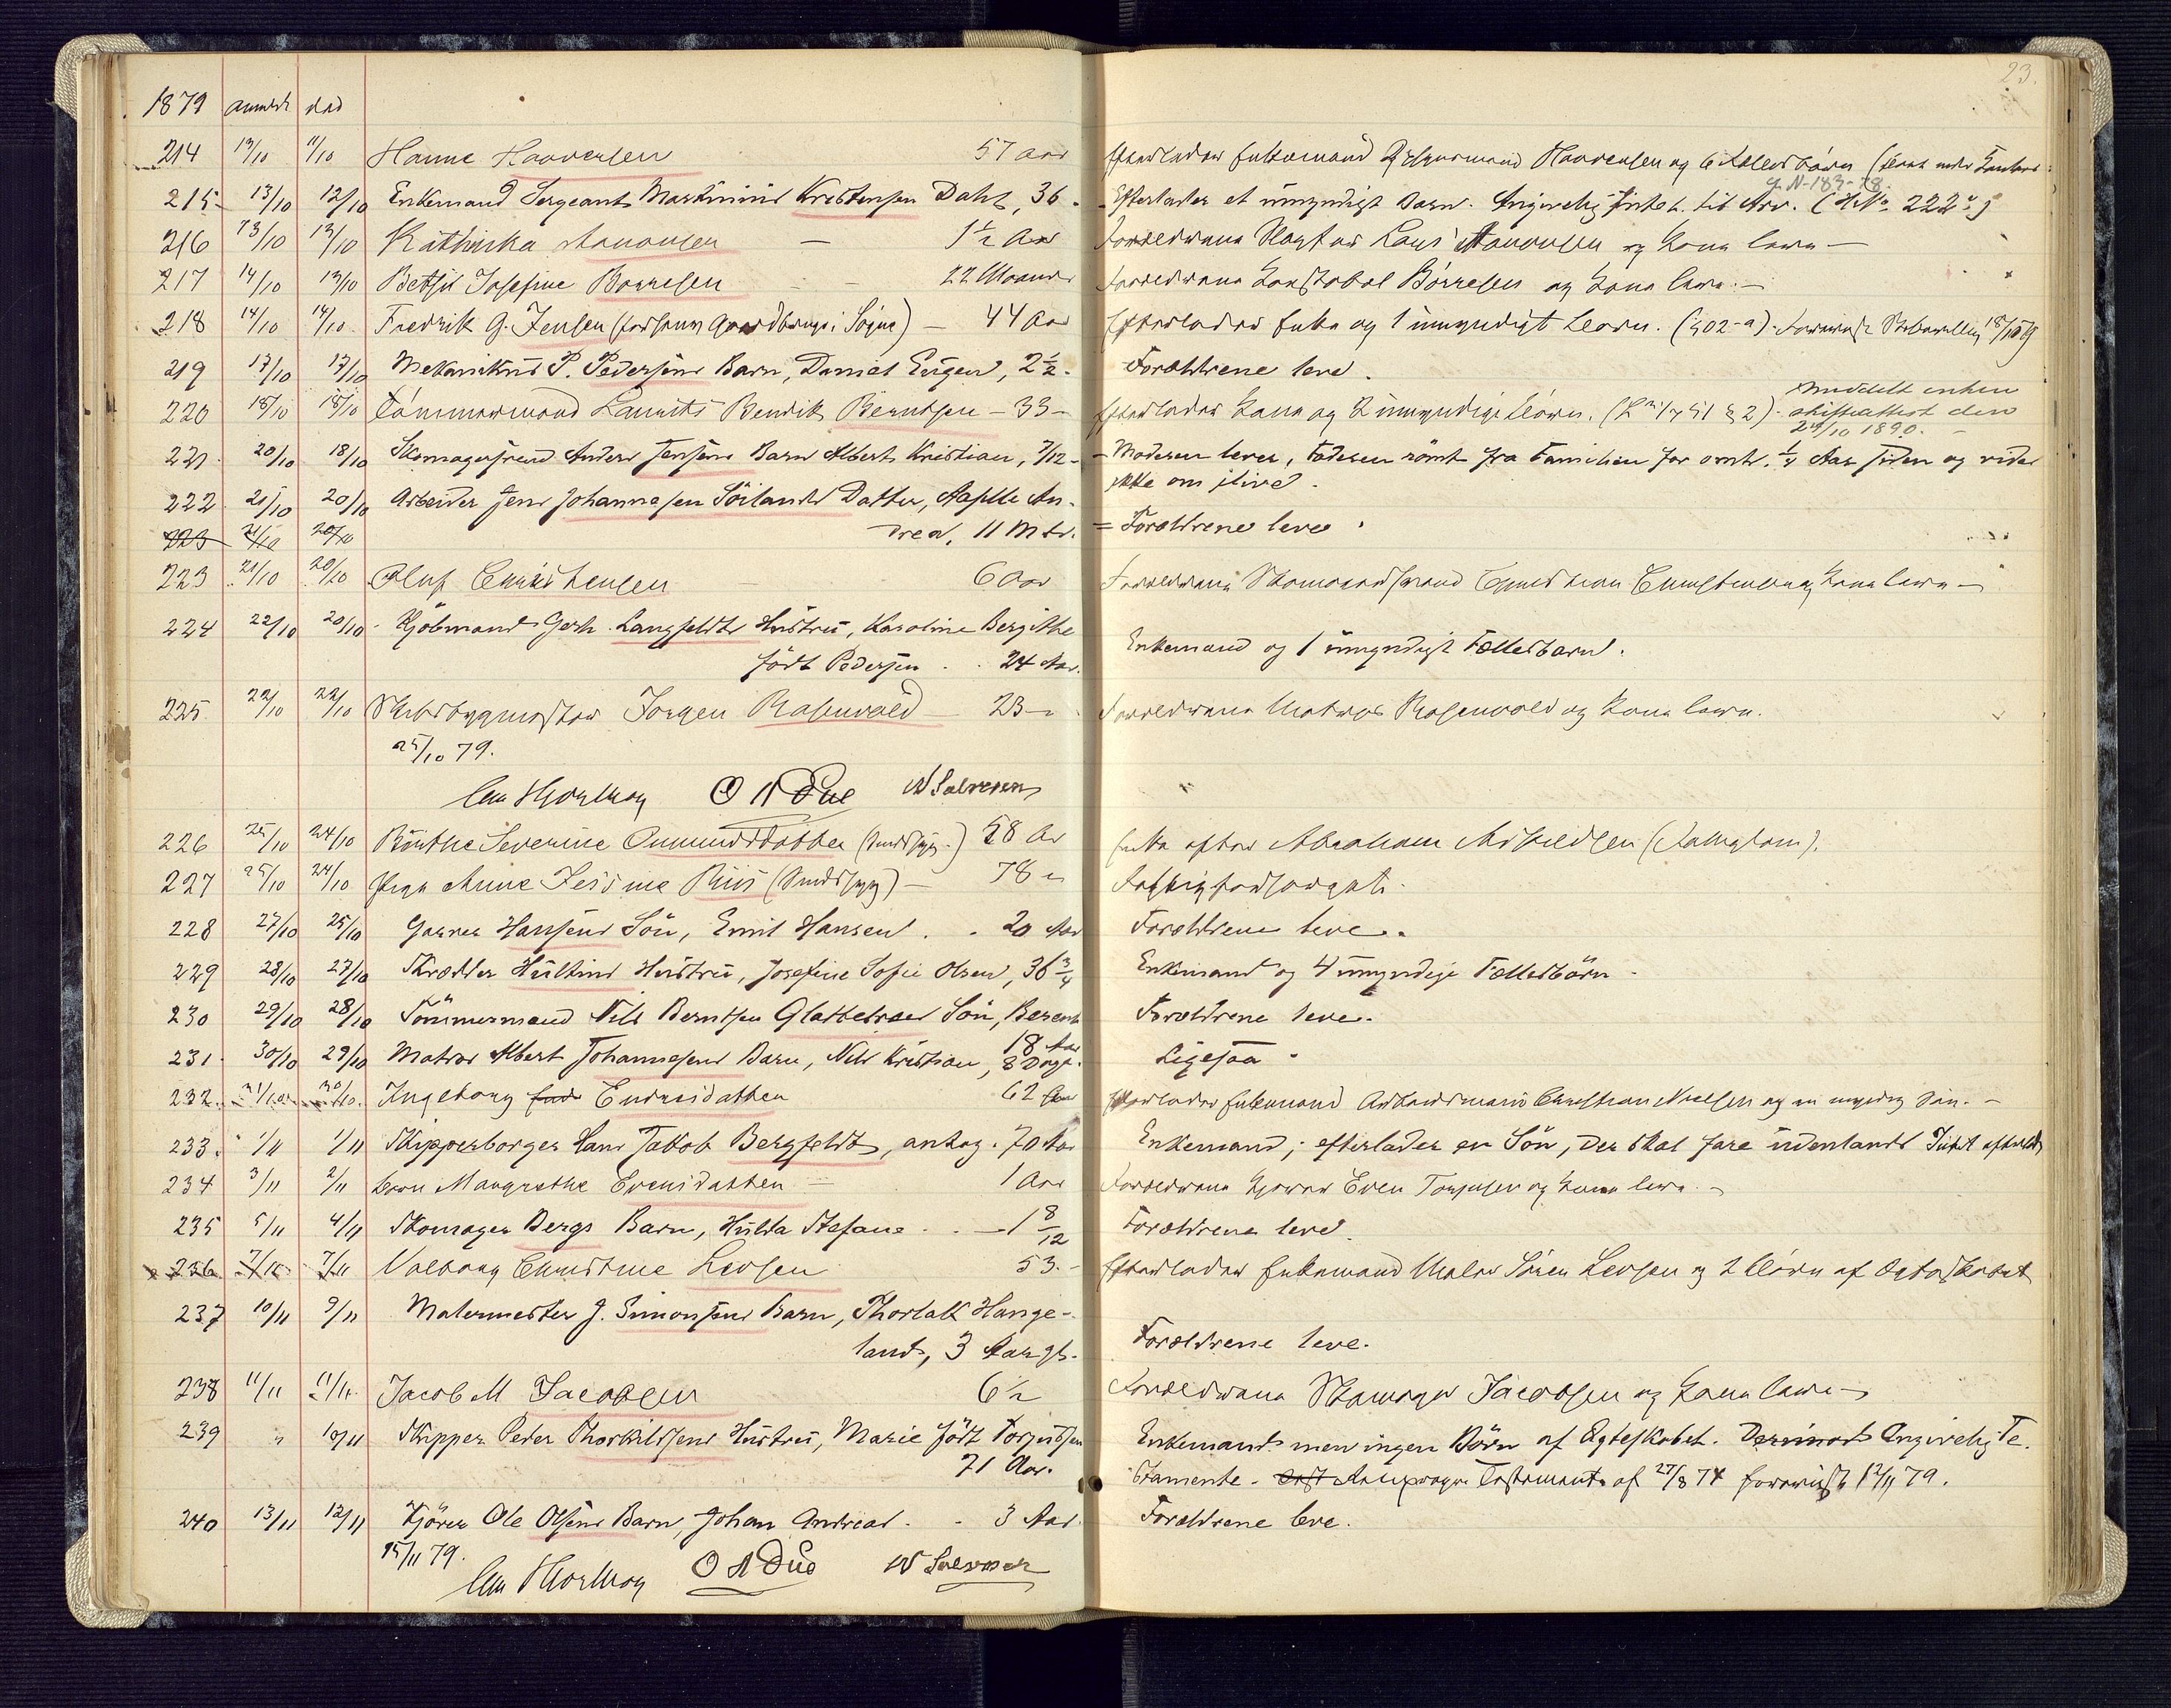 23.
1879 anmeldt død
214 13/10 11/10 Hanne Haavensen 57 Aar Efterlader Enkemand Haavensen og 6 Fællesbørn
215 13/10 12/10 Enkemand Sergeant Martinius Kristensen Dahl, 36. Efterlader et umyndigt Barn. Angivelig Intet til Arv. (H. No. 222)
N-183-78.
216 13/10 12/10 Kathinka Aanonsen — 1½ Aar Forældrene Lars Aanonsen og Kone leve —
217 14/10 13/10 Betsy Josefine Børresen 22 Maaneder Forældrene Konstabel Børresen og Kone leve. —
218 14/10 14/10 Fredrik G. Jensen (forhenv. Gaardbruger i Søgne) — 44 Aar Efterlader Enke og 1 umyndigt Barn. (§ 02-a).
219 17/10 17/10 Mekanikus P. Pedersens Barn, Daniel Eugen, 2½. Forældrene leve.
220 18/10 18/10 Tømmermand Laurits Bendik Berntsen — 33 — Efterlader Kone og 2 umyndige Børn.
meddelt enken
skifteattest den
24/10 1890. —
221 20/10 18/10 Skomagersvend Anders Jensens Barn Albert Kristian, 7/12 — Moderen lever, Faderen rømt fra Familien for omtr. ½ Aar siden og vides
ikke om ilive.
222 21/10 20/10 Arbeider Jens Johannesen Sørlands Datter, Aasille An-
223 21/10 20/10 drea, 11 Mdr. = Forældrene leve.
223 21/10 20/10 Oluf Christensen — 6 Aar Forældrene Skomagersvend Christian Christensen og Kone leve —
224 22/10 20/10 Kjøbmand Gerh. Langfeldts Hustru, Karoline Bergithe
født Pedersen . . 24 Aar. Enkemand og 1 umyndigt Fællesbarn.
225 22/10 22/10 Skibsbygmester Jørgen Rosenvold — 23 — Forældrene Mathias Rosenvold og Kone leve.
25/10 79.
O A Due W Salvesen
226 25/10 24/10 Børthe Severine Omundsdatter 58 Aar Enke efter Abraham
227 25/10 24/10 Pige Anne Jesine Riis — 78 — Fattigforsørget.
228 27/10 25/10 Garver Hansens Søn, Emil Hansen . . 20 Aar Forældrene leve.
229 28/10 27/10 Skrædder Hultins Hustru, Josefine Sofie Olsen, 36¾ Enkemand og 4 umyndige Fællesbørn.
230 29/10 28/10 Tømmermand Nils Berntsen Glattetræes Søn, Berent
18 Aar Forældrene leve.
231 30/10 29/10 Matros Albert Johannesens Barn, Nils Kristian, 8 Dage. Ligesaa.
232. 31/10 30/10 Ingeborg Endresdatter 62 Aar Efterlader Enkemand Arbeidsmand Christian Nielsen og en myndig Søn. —
233. 1/11 1/11 Skipperborger Hans Jakob Bergfeldt, antag. 70 Aar Enkemand; efterlader en Søn, der skal fare udenlands. Intet efterladt
234 3/11 2/11 Barn Margrethe Evensdatter — 1 Aar Forældrene Even Torjusen og Kone leve. —
235 5/11 4/11 Skomager Bergs Barn, Hulda Stefane . . — 1 8/12 Forældrene leve.
236 7/11 7/11 Valborg Christine Levsen 53. — Efterlader Enkemand Maler Søren Levsen og 2 Børn af Ægteskabet
237 10/11 9/11 Malermester J. Simonsens Barn, Thorlak Hange-
land, 3 Aar gl. Forældrene leve.
238 11/11 11/11 Jacob M Jacobsen 6½ Forældrene Skomager Jacobsen og Kone leve —
239 " 10/11 Skipper Peder Thorkildsens Hustru, Marie født Torjussen
71 Aar. Enkemand men ingen Børn af Ægteskabet. Derimod Angivelig Te-
stamente. Testamente af 27/8 74 forevist 12/11 79.
240 13/11 12/11 Kjører Ole Olsens Barn, Johan Andreas . . 3 Aar Forældrene leve.
15/11 79.
O A Due W Salvesen